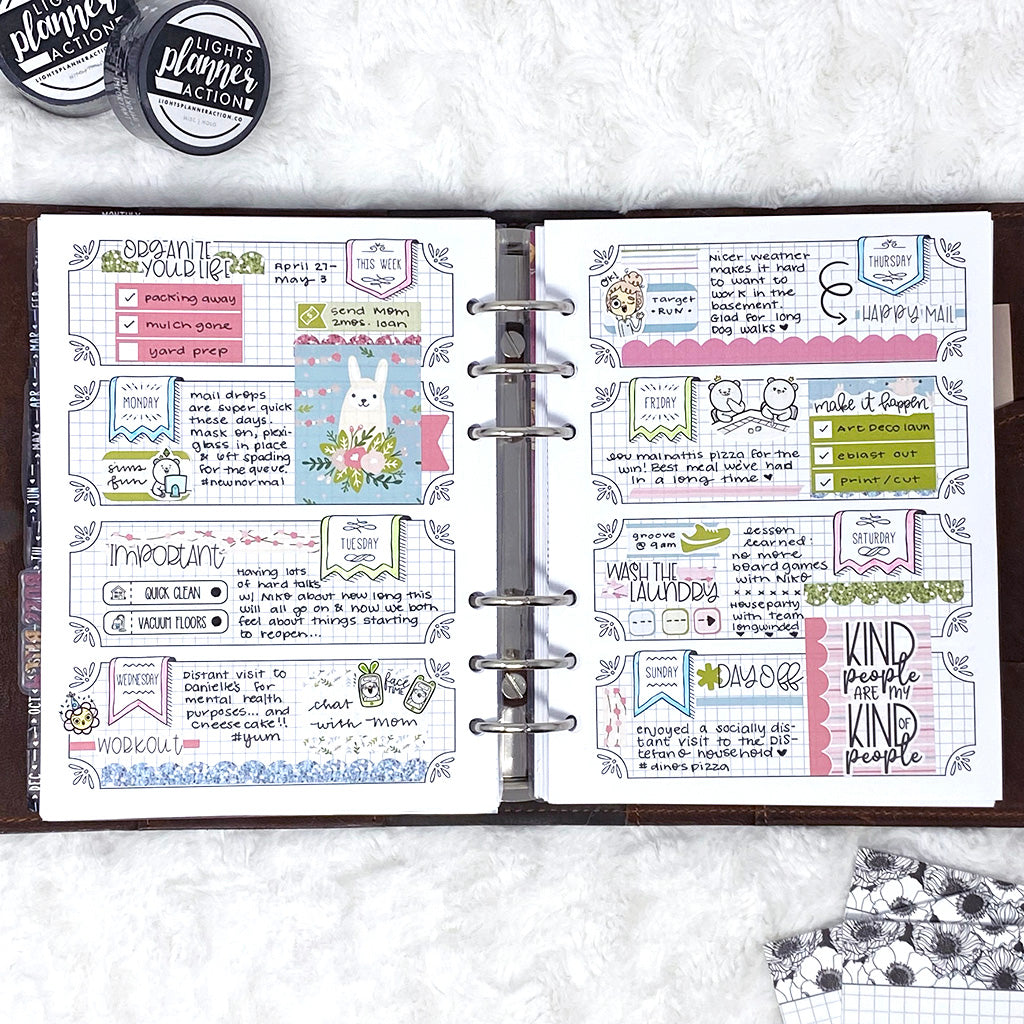 LIGHTS
planner
ACTION
LIGHTSPLANNERACTION.CO
LIGHTS
planner
ACTION
LIGHTSPLANNERACTION.CO
MISC | HOLO
MONTHLY
MAR
FEB
APR
MAY
JUN
OCT
DEC
ORGANIZE
YOUR LIFE
April 27-
May 3
THIS WEEK
packing away
mulch gone
yard prep
send mom
2mos. loan
MONDAY
mail drops
are super quick
these days.
Mask on, plexi-
glass in place
& 6ft spacing
for the queue.
#newnormal
IMPORTANT
QUICK CLEAN
VACUUM FLOORS
TUESDAY
Having lots
of hard talks
w/ Niko about how long this
will all go on & how we both
feel about things starting
to reopen...
WEDNESDAY
WORKOUT
Distant visit to
Danielle's for
mental health
purposes... and
cheesecake!!
#yum
face
TIME
chat
with mom
OK!
Target
• RUN •
Nicer weather
makes it hard
to want to
work in the
basement.
Glad for long
dog walks ♥
THURSDAY
HAPPY MAIL
FRIDAY
Lou malnattis pizza for the
win! Best meal we've had
in a long time ♥
make it happen
Art Deco laun
eblast out
print/cut
groove
@ 9am
WASH THE
LAUNDRY
lesson
learned:
no more
board games
with Niko
x x x x x x
Houseparty
with Team
longwinded
SATURDAY
SUNDAY
DAY OFF
enjoyed a socially dis-
tant visit to the Dis-
tefano household ♥
#dinospizza
KIND
people
ARE MY
KIND
OF
people